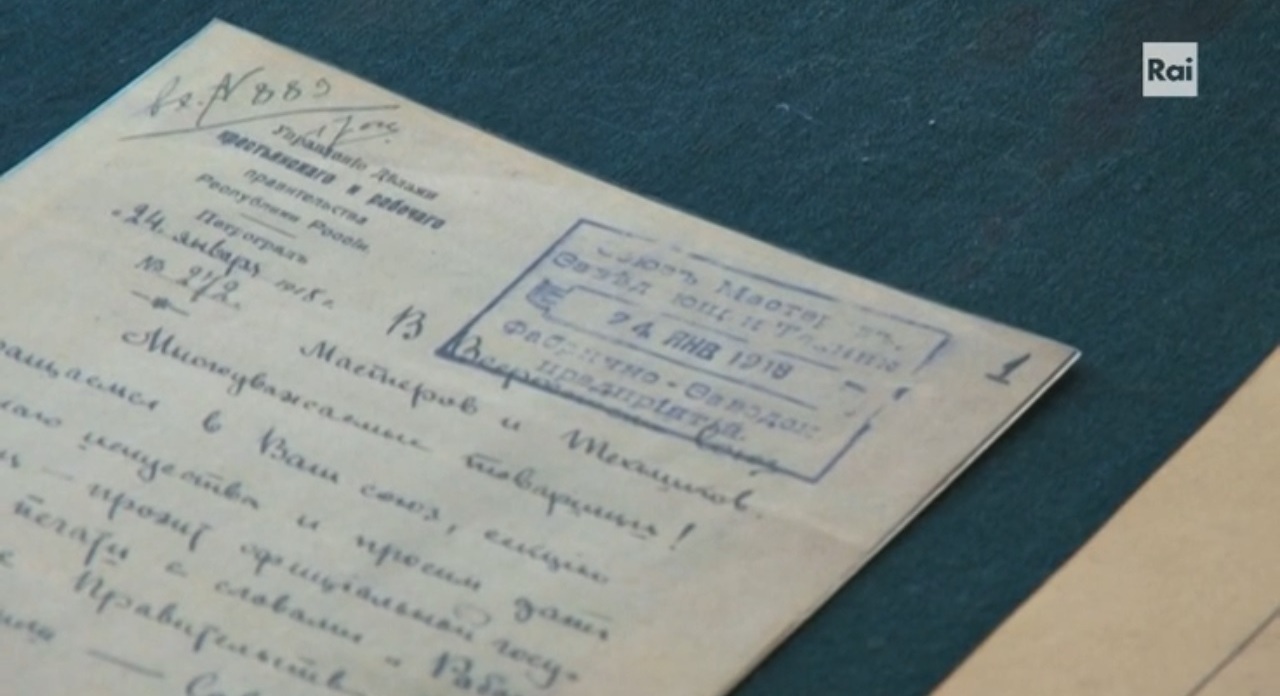 Rai
Вх. № 889
Управленіе Дѣлами
крестьянскаго и рабочаго
правительства
Республики Россіи.
Петроградъ
"24. января 1918 г.
№ 212.
Союзъ Мастер
24 ЯНВ 1918
Фабрично-Заводск
предпріятій.
1
В Всерос Союз
Мастеров и Техников.
Многоуважаемые товарищи!
ращаемся в Ваш союз, секцію
искусства и просим дать
проэкт официальной госу-
печати с словами "Рабо
Правительств